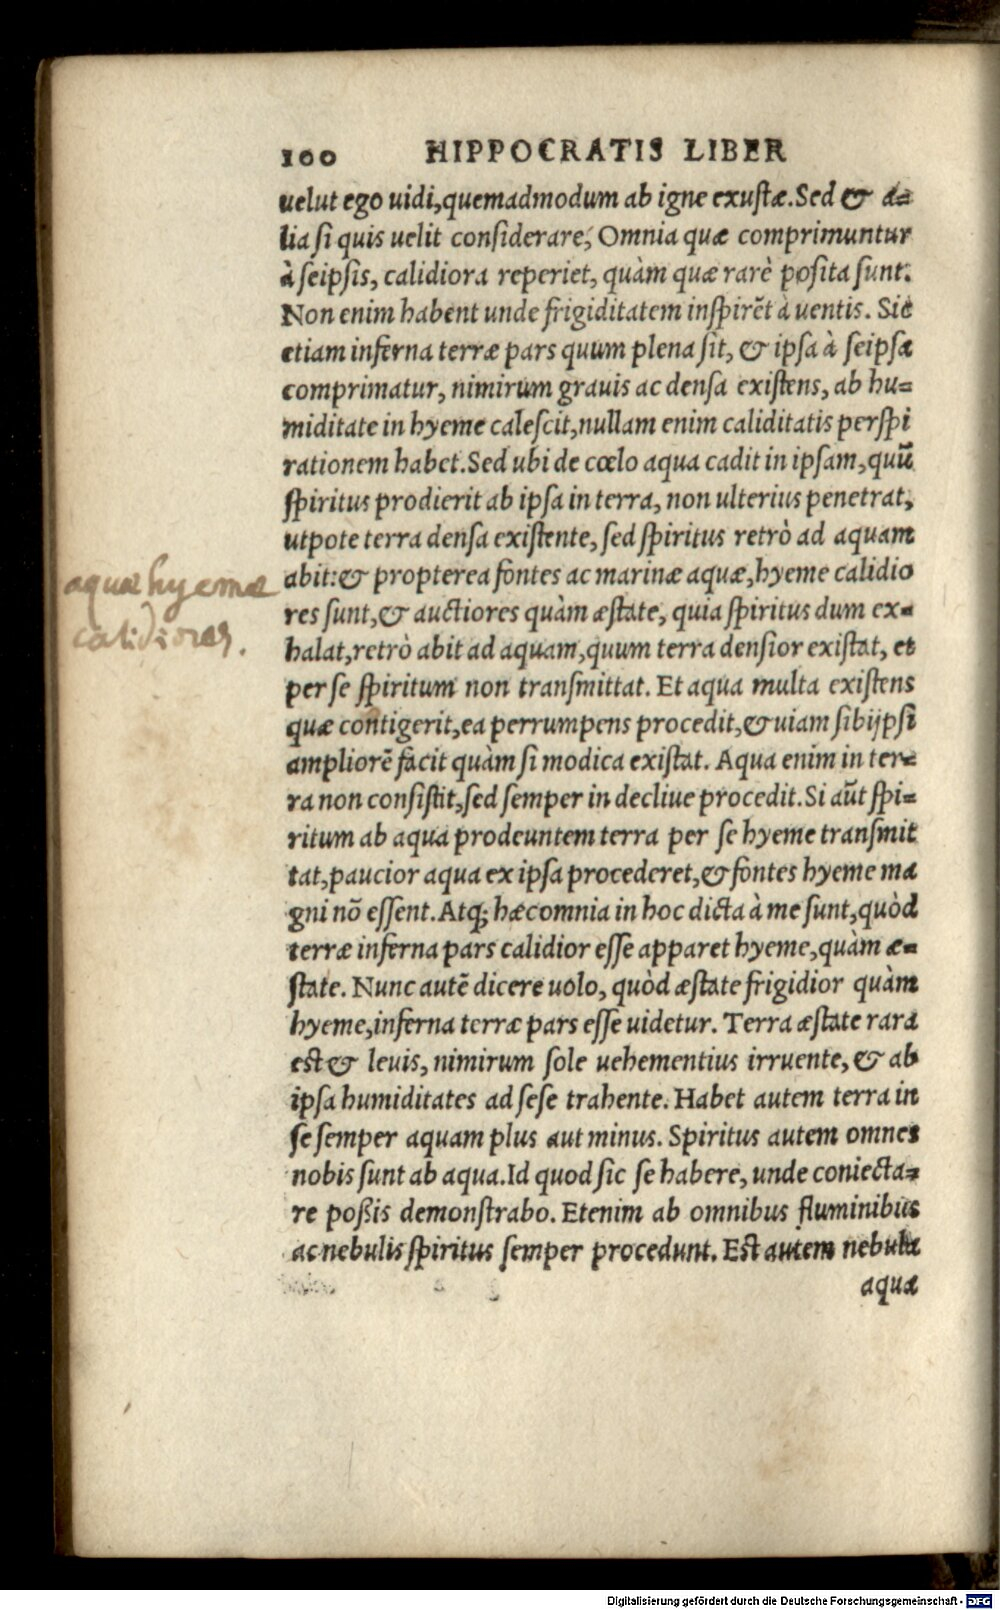 100 HIPPOCRATIS LIBER
uelut ego uidi, quemadmodum ab igne exustæ. Sed & a=
lia si quis uelit considerare, Omnia quæ comprimuntur
à seipsis, calidiora reperiet, quàm quæ rarè posita sunt.
Non enim habent unde frigiditatem inspirẽt à uentis. Sic
etiam inferna terræ pars quum plena sit, & ipsa à seipsa
comprimatur, nimirum grauis ac densa existens, ab hu=
miditate in hyeme calescit, nullam enim caliditatis perspi
rationem habet. Sed ubi de cœlo aqua cadit in ipsam, quũ
spiritus prodierit ab ipsa in terra, non ulterius penetrat,
utpote terra densa existente, sed spiritus retrò ad aquam
abit: & propterea fontes ac marinæ aquæ, hyeme calidio
res sunt, & auctiores quàm æstate, quia spiritus dum ex=
halat, retrò abit ad aquam, quum terra densior existat, et
per se spiritum non transmittat. Et aqua multa existens
quæ contigerit, ea perrumpens procedit, & uiam sibijpsi
ampliorẽ facit quàm si modica existat. Aqua enim in ter=
ra non consistit, sed semper in decliue procedit. Si aũt spi=
ritum ab aqua prodeuntem terra per se hyeme transmit
tat, paucior aqua ex ipsa procederet, & fontes hyeme ma
gni nõ essent. Atq; hæc omnia in hoc dicta à me sunt, quòd
terræ inferna pars calidior esse apparet hyeme, quàm æ=
state. Nunc autẽ dicere uolo, quòd æstate frigidior quàm
hyeme, inferna terræ pars esse uidetur. Terra æstate rara
est & leuis, nimirum sole uehementius irruente, & ab
ipsa humiditates ad sese trahente. Habet autem terra in
se semper aquam plus aut minus. Spiritus autem omnes
nobis sunt ab aqua. Id quod sic se habere, unde coniecta=
re poßis demonstrabo. Etenim ab omnibus fluminibus
ac nebulis spiritus semper procedunt. Est autem nebula
aqua
aquæ hyeme
calidiores.
Digitalisierung gefördert durch die Deutsche Forschungsgemeinschaft - DFG